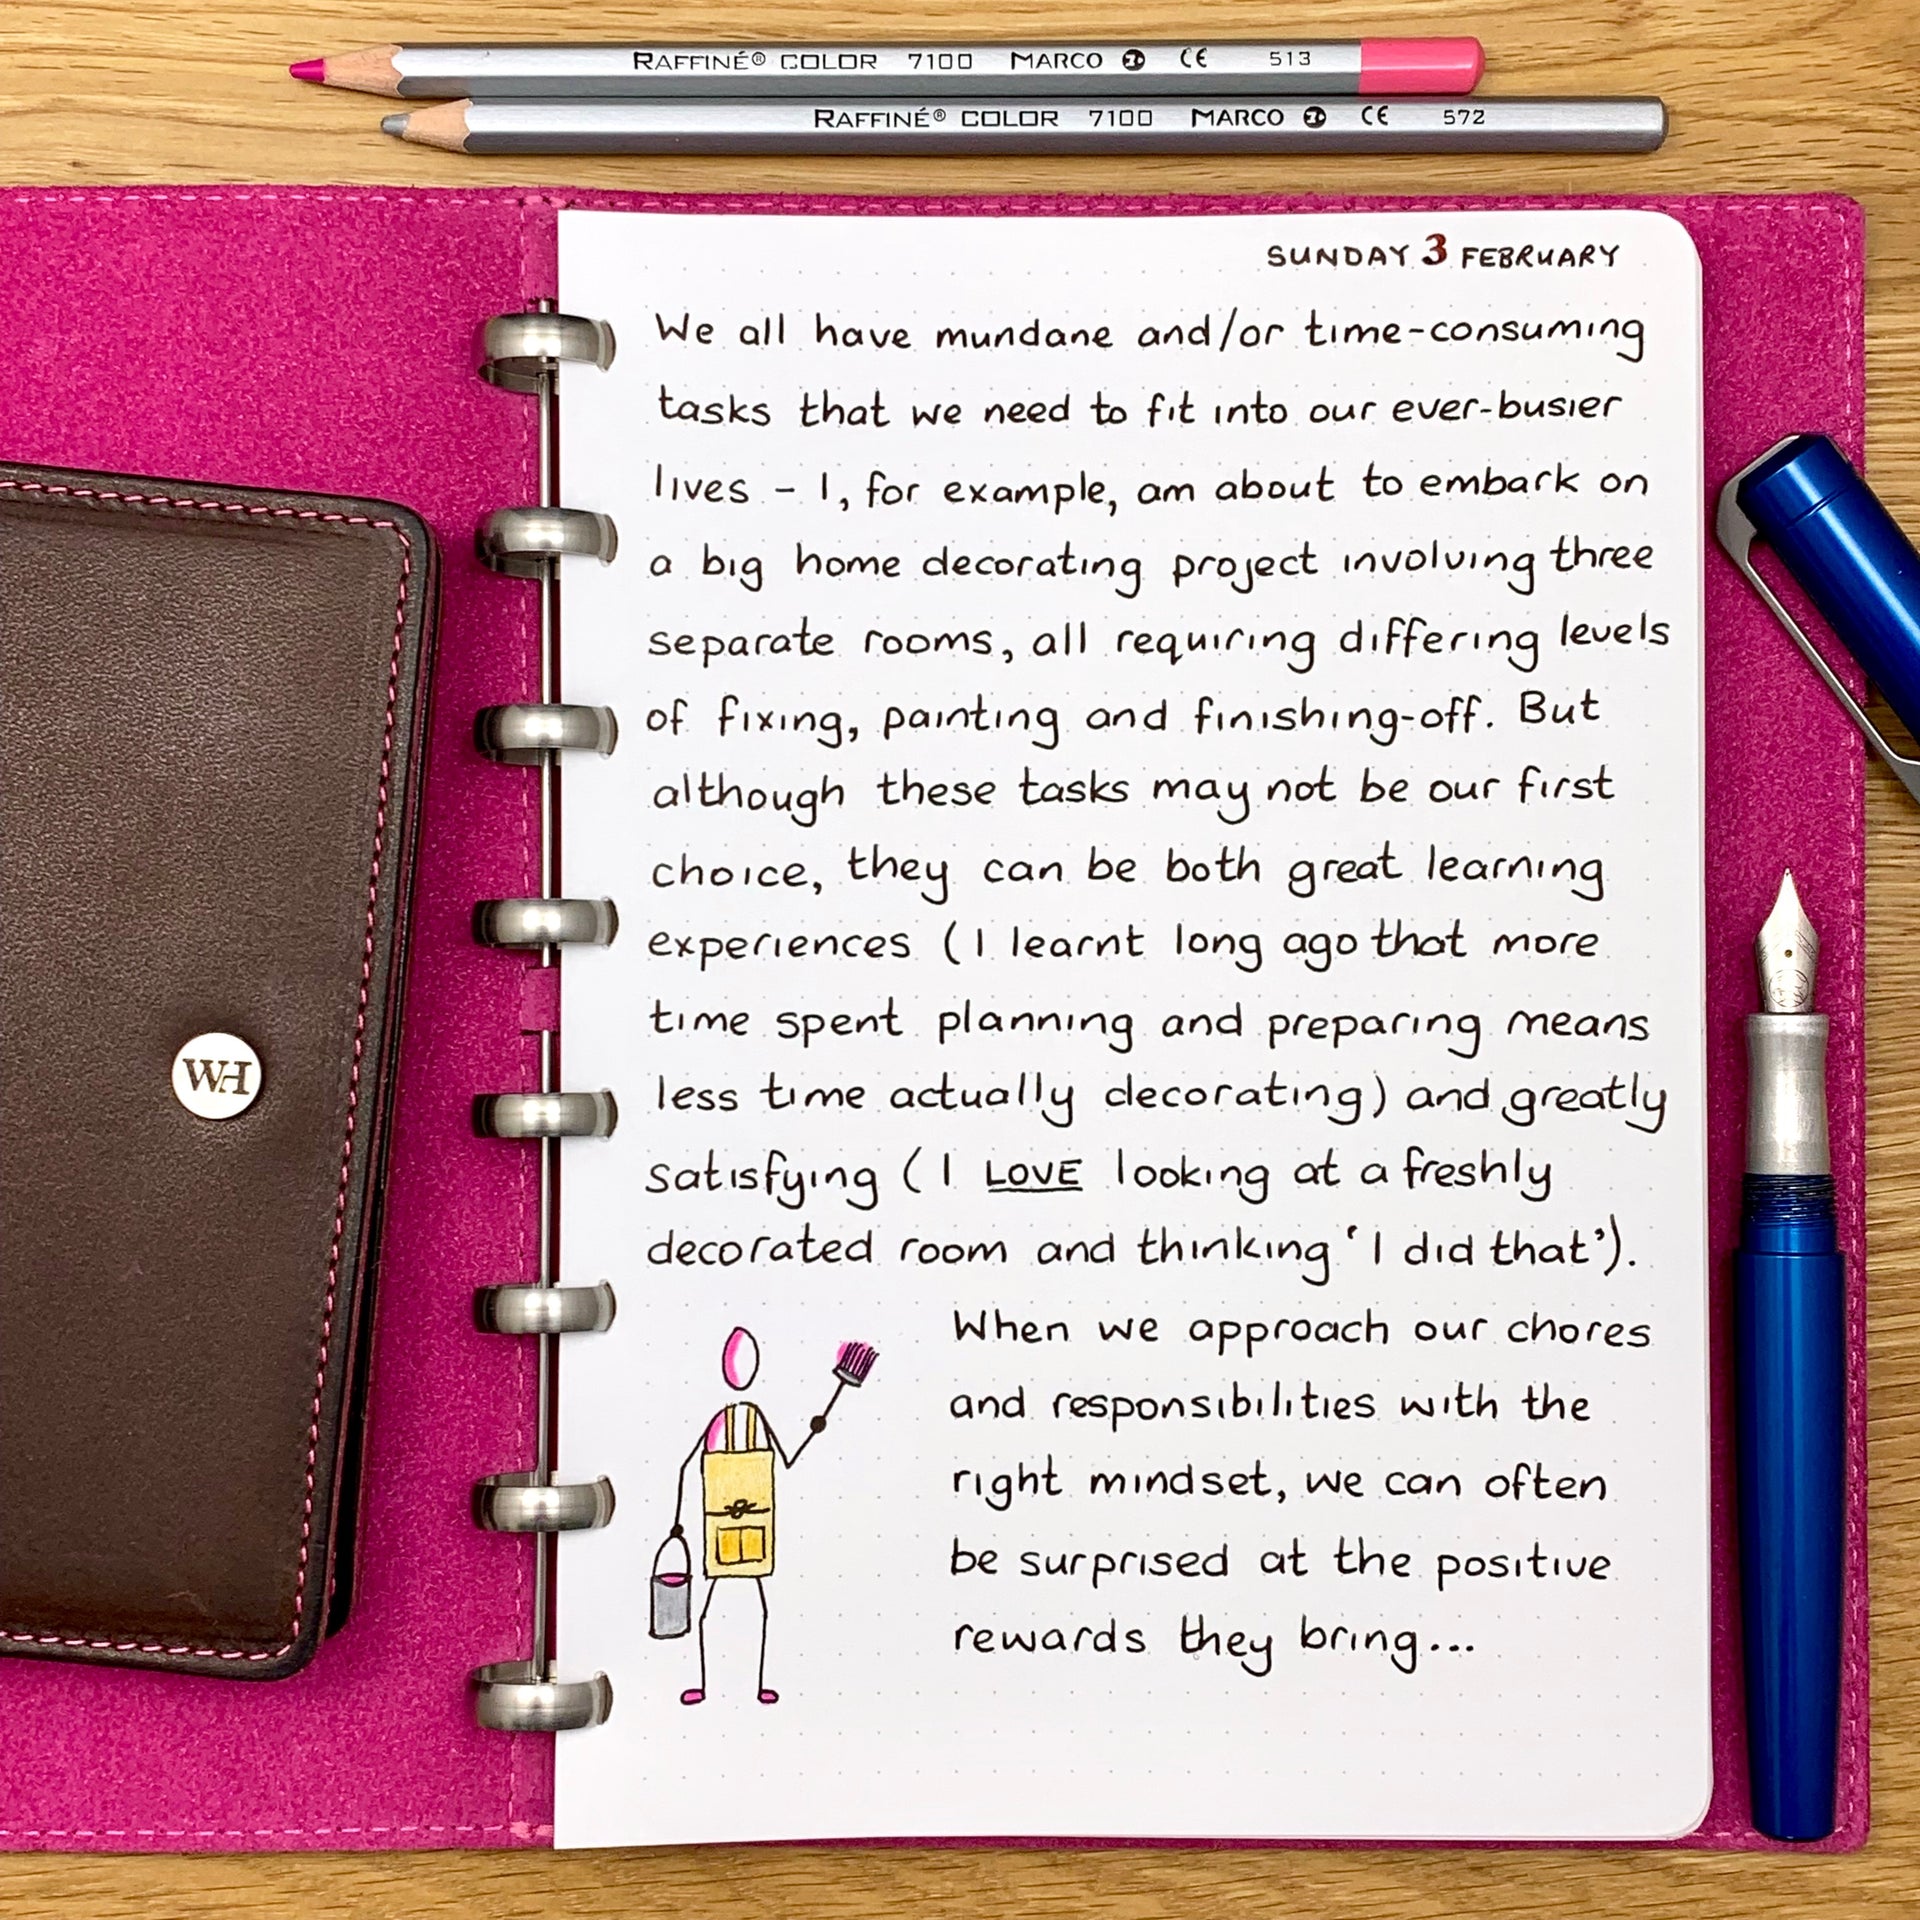 RAFFINÉ® COLOR 7100 MARCO CE 513
RAFFINÉ® COLOR 7100 MARCO CE 572
SUNDAY 3 FEBRUARY
We all have mundane and/or time-consuming
tasks that we need to fit into our ever-busier
lives - I, for example, am about to embark on
a big home decorating project involving three
separate rooms, all requiring differing levels
of fixing, painting and finishing-off. But
although these tasks may not be our first
choice, they can be both great learning
experiences (I learnt long ago that more
time spent planning and preparing means
less time actually decorating) and greatly
satisfying (I LOVE looking at a freshly
decorated room and thinking 'I did that').
When we approach our chores
and responsibilities with the
right mindset, we can often
be surprised at the positive
rewards they bring...
WH